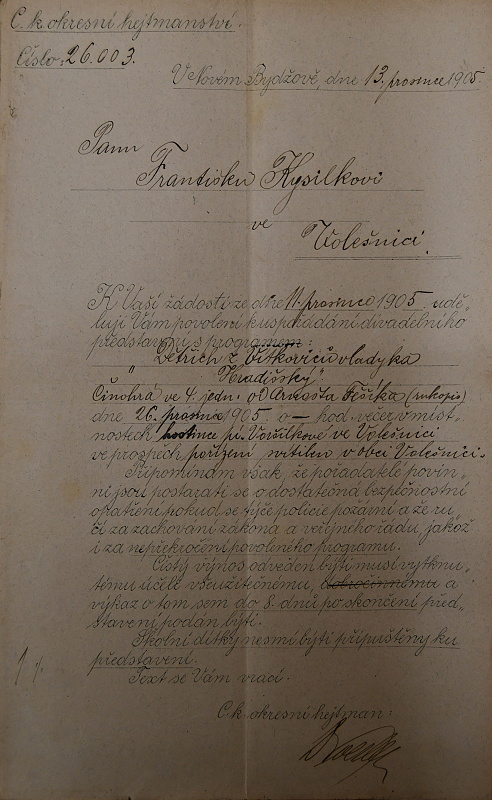 C. k. okresní hejtmanství.
Číslo: 26.003.
V Novém Bydžově, dne 13. prosince 1905.
Panu
Františku Kysilkovi
ve
Volešnici.
K Vaší žádosti ze dne 11. prosince 1905 udě-
luji Vám povolení ku spořádání divadelního
představení s programem:
"Dětřich z Vítkoviců vladyka
Hradišský".
Činohra ve 4. jedn. od Arnošta Fešíka (rukopis)
dne 26. prosince 1905 o — hod. večer v míst-
nostech hostince pí. Voršilkové ve Volešnici
ve prospěch pořízení svítilen v obci Volešnici.
Připomínám však, že pořadatelé povin-
ni jsou postarati se o dostatečná bezpečnostní
opatření, pokud se týče policie požární a že ru-
čí za zachování zákona a veřejného řádu, jakož
i za nepřekročení povoleného programu.
Čistý výnos odveden býti musí vytknu-
tému účeli všeužitečnému, dobročinnému a
výkaz o tom sem do 8. dnů po skončení před-
stavení podán býti.
Školní dítky nesmí býti připuštěny ku
představení.
Text se Vám vrací.
C. k. okresní hejtman: